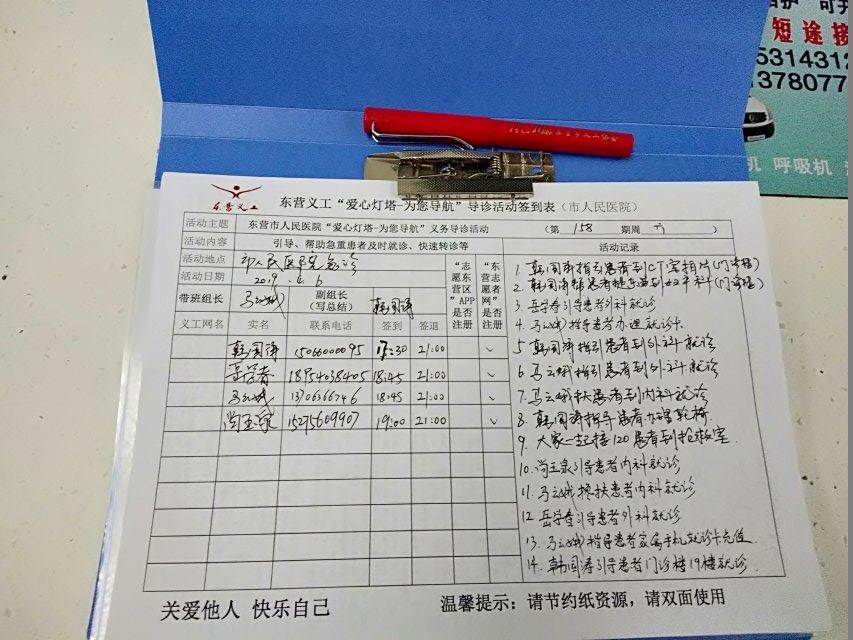 短途接
5314312
13780777
呼吸机
东营义工
东营义工“爱心灯塔-为您导航”导诊活动签到表（市人民医院）
活动主题 东营市人民医院“爱心灯塔-为您导航”义务导诊活动 （第 158 期周
活动内容 引导、帮助急重患者及时就诊、快速转诊等 活动记录
活动地点 市人民医院急诊
活动日期 2019.4.6
带班组长 马云娥 副组长（写总结） 韩国涛
“志愿东营区”APP是否注册
“东营志愿者网”是否注册
义工网名 实名 联系电话 签到 签退
韩国涛 15066000095 17:30 21:00 ✓
岳学春 18954038405 18:45 21:00 ✓
马云娥 13706366746 18:45 21:00 ✓
尚玉泉 15275609907 19:00 21:00 ✓
1. 韩国涛指引患者到CT室拍片(门诊楼)
2. 韩国涛帮患者 到妇产科(门诊楼)
3. 岳学春引导患者外科就诊
4. 马云娥指导患者办理就诊卡
5. 韩国涛指引患者到外科就诊
6. 马云娥指引患者到外科就诊
7. 马云娥扶患者到内科就诊
8. 韩国涛指导患者办理轮椅
9. 大家一起接120患者到抢救室
10. 尚玉泉引导患者内科就诊
11. 马云娥搀扶患者内科就诊
12. 岳学春引导患者外科就诊
13. 马云娥指导患者家属手机就诊卡充值
14. 韩国涛引导患者门诊楼19楼就诊
关爱他人 快乐自己
温馨提示：请节约纸资源，请双面使用